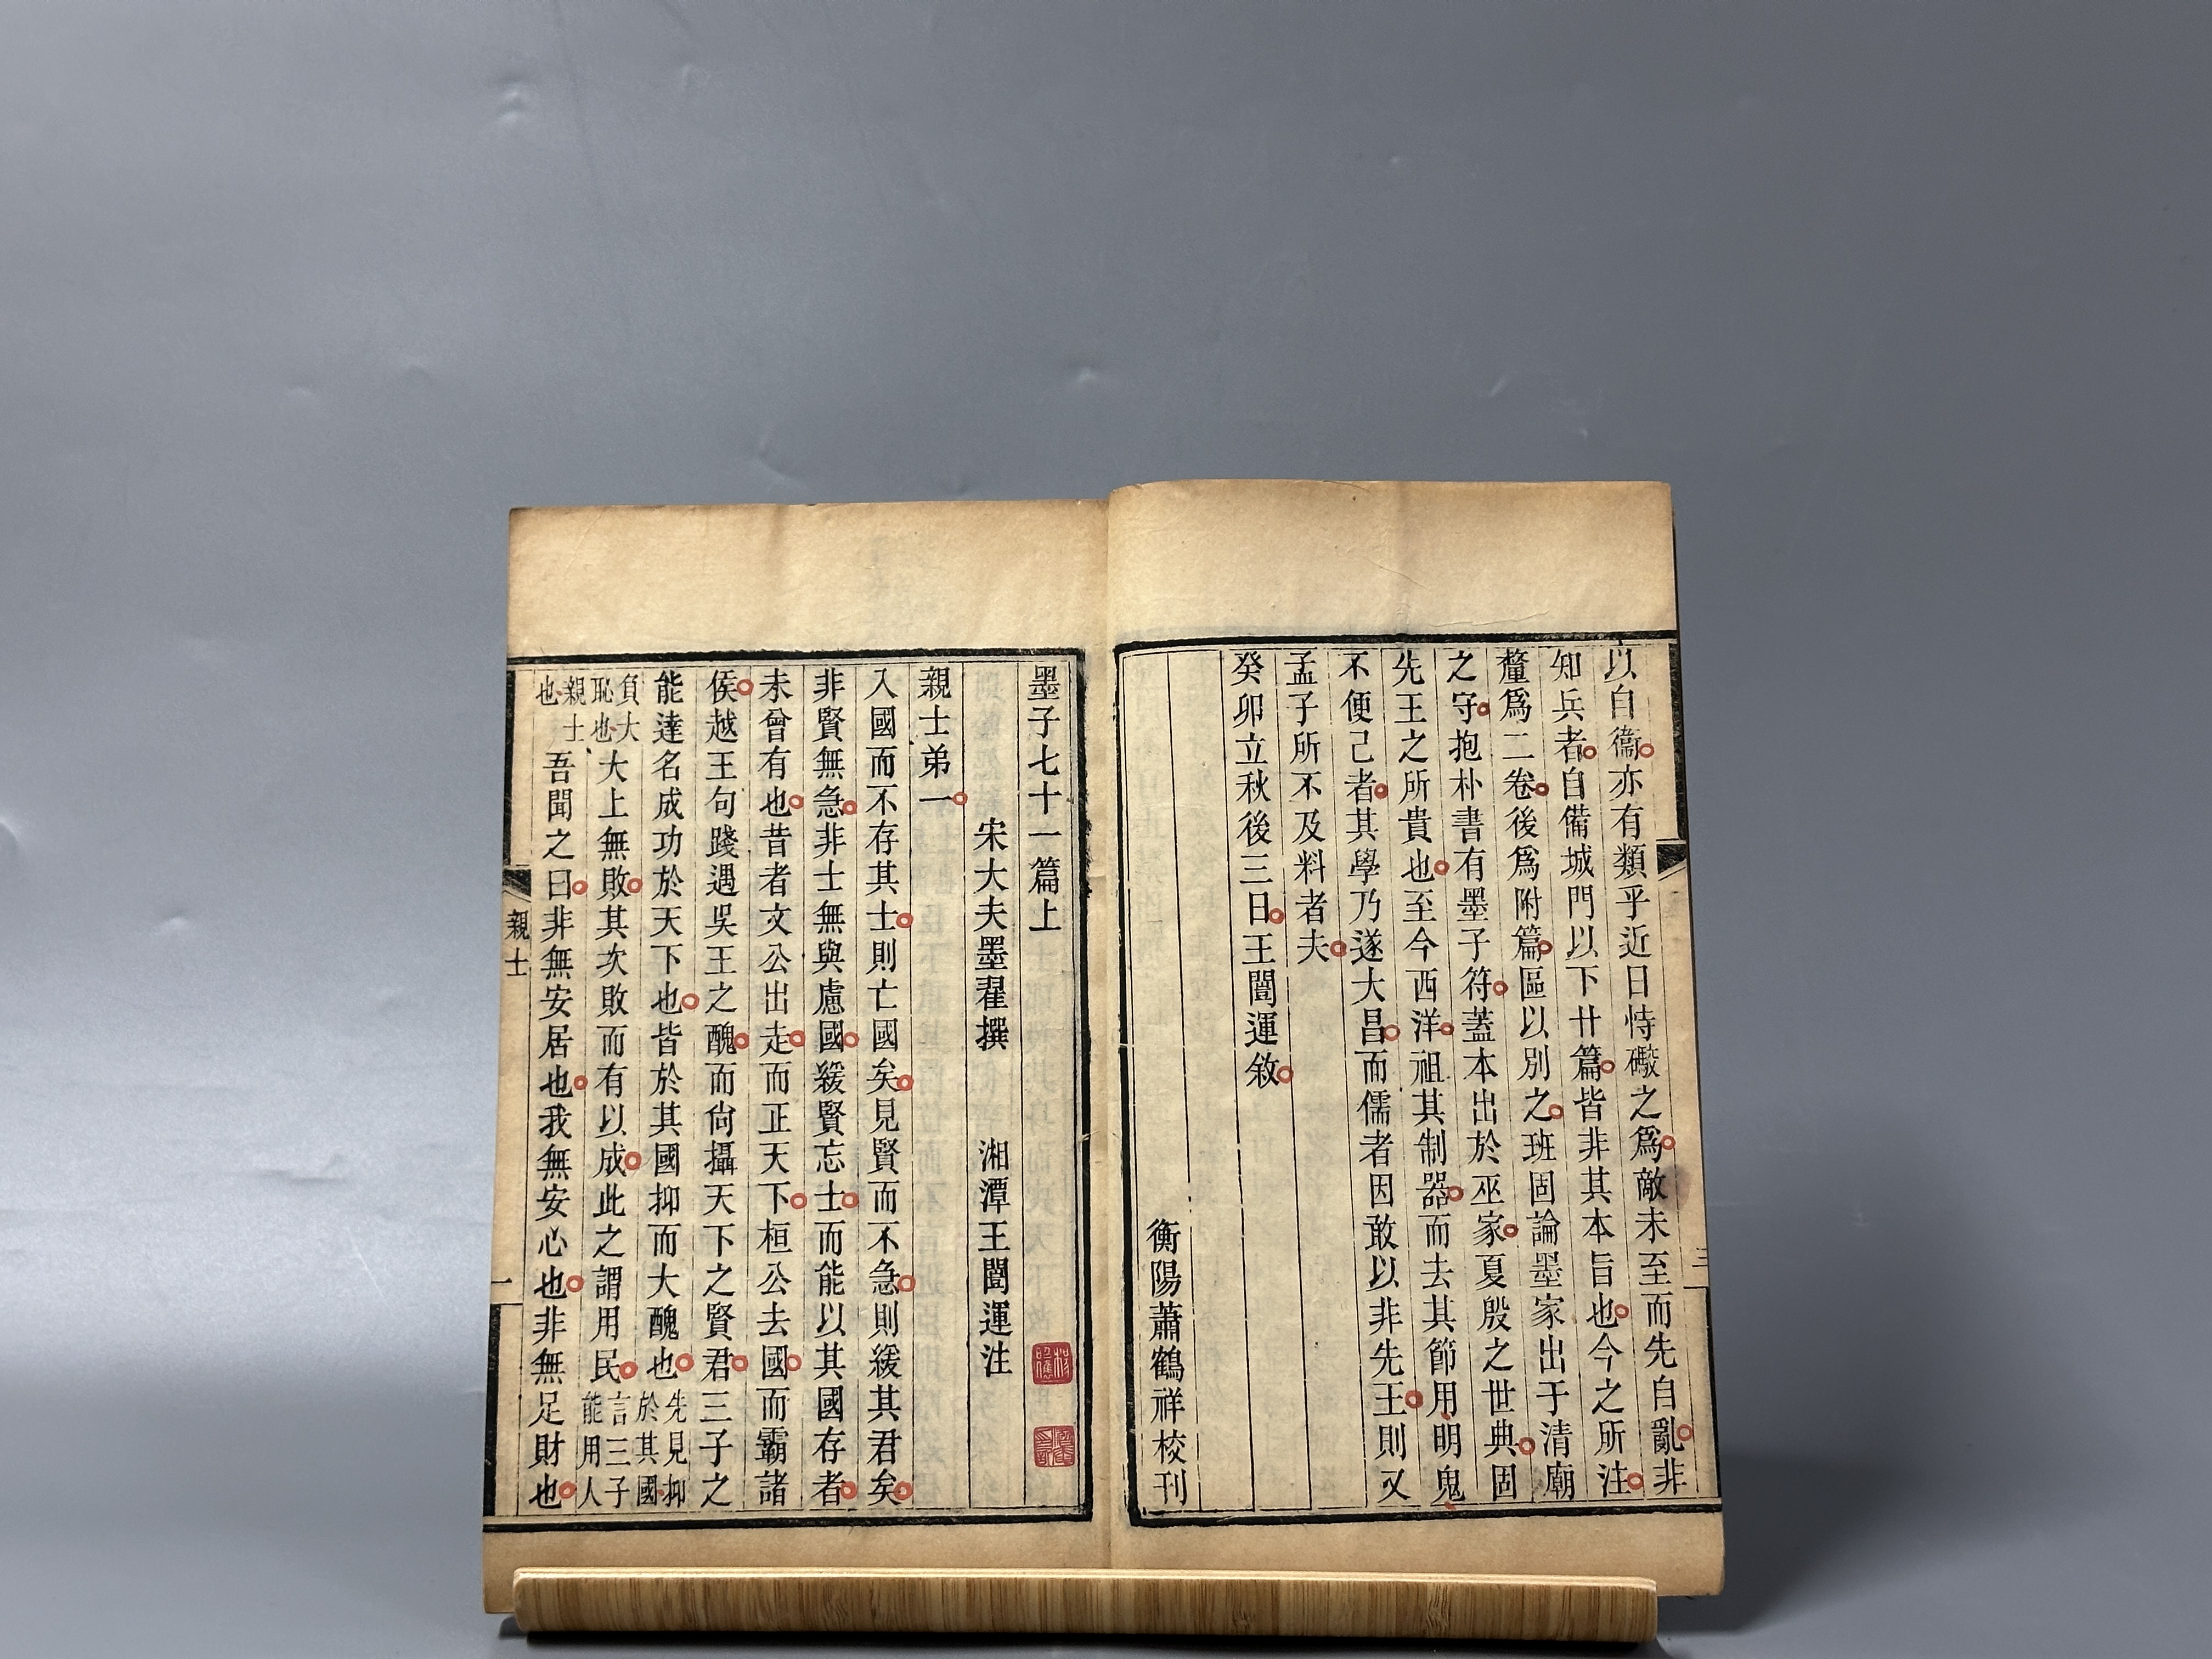 以自衞亦有類乎近日恃礮之爲敵未至而先自亂非
知兵者自備城門以下廿篇皆非其本旨也今之所注
釐爲二卷後爲附篇區以別之班固論墨家出于清廟
之守抱朴書有墨子符蓋本出於巫家夏殷之世典固
先王之所貴也至今西洋祖其制器而去其節用明鬼
不便己者其學乃遂大昌而儒者因敢以非先王則又
孟子所不及料者夫
癸卯立秋後三日王闓運敘
衡陽蕭鶴祥校刊
三
墨子七十一篇上
宋大夫墨翟撰 湘潭王闓運注
親士弟一
入國而不存其士則亡國矣見賢而不急則緩其君矣
非賢無急非士無與慮國緩賢忘士而能以其國存者
未曾有也昔者文公出走而正天下桓公去國而霸諸
侯越王句踐遇吳王之醜而尙攝天下之賢君三子之
能達名成功於天下也皆於其國抑而大醜也先見抑於其國
負大恥也大上無敗其次敗而有以成此之謂用民言三子能用人
親士也吾聞之曰非無安居也我無安心也非無足財也
親士
一